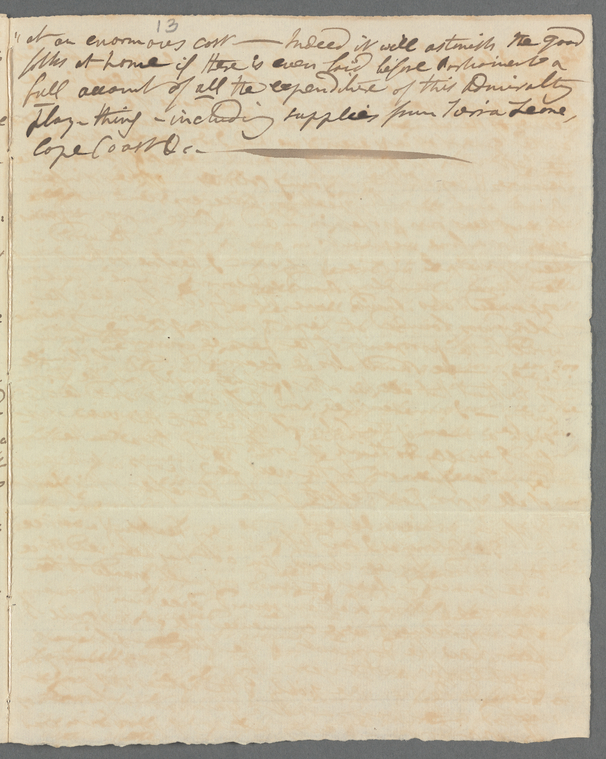 13
"at an enormous cost — Indeed it will astonish the good
folks at home if there is ever laid before Parliament a
full account of all the expenditure of this Admiralty
Play-thing – including supplies from Sierra Leone,
Cape Coast &c –